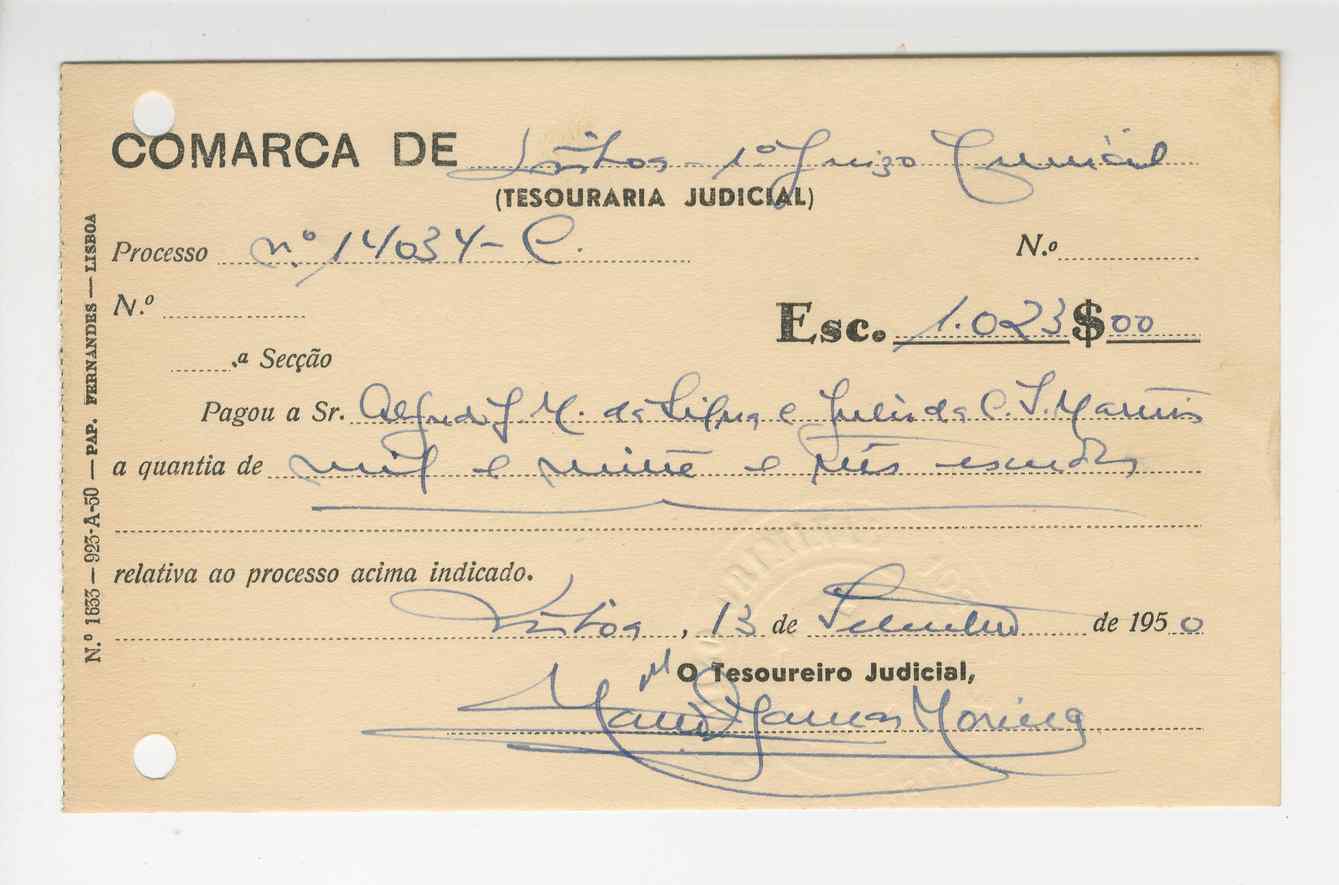 COMARCA DE Lisboa - 1º Juizo Criminal
(TESOURARIA JUDICIAL)
Processo nº 14034-C. N.º
N.º
Esc. 1.023$00
.ª Secção
Pagou a Sr. Alfredo J. M. da Silva e Julio da C. S. Martins
a quantia de mil e vinte e três escudos
relativa ao processo acima indicado.
Lisboa, 13 de Setembro de 1950
O Tesoureiro Judicial,
N.º 1633 — 923-A-50 — PAP. FERNANDES — LISBOA